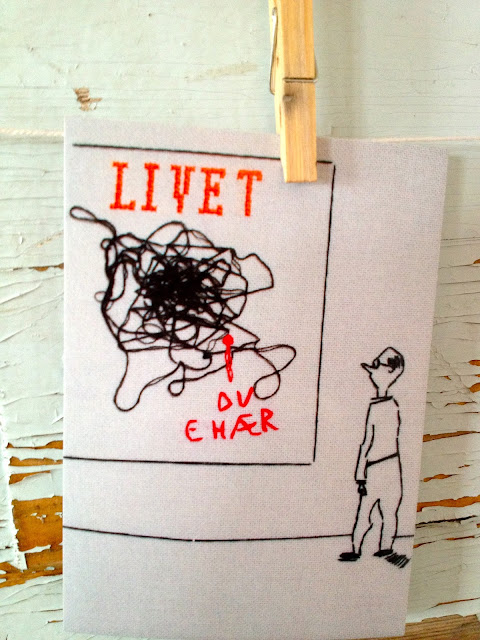 LIVET
DU
E HÆR